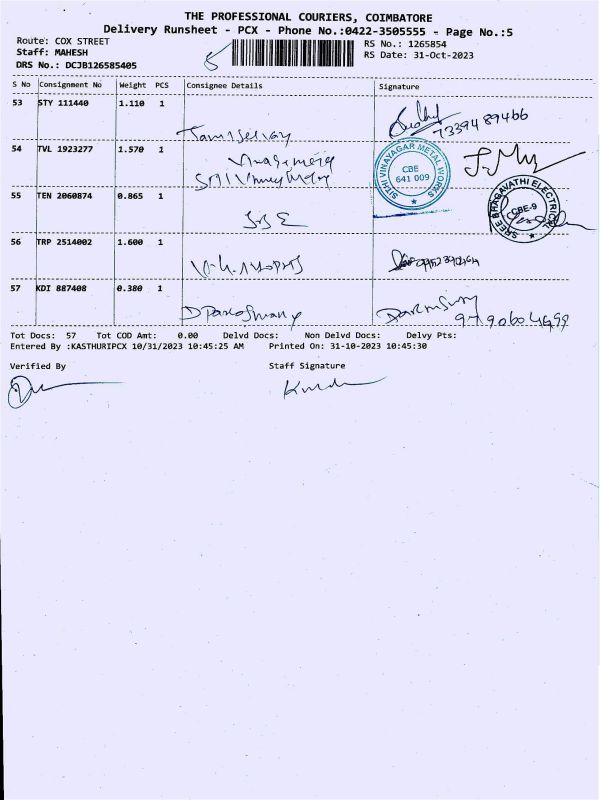 THE PROFESSIONAL COURIERS, COIMBATORE
Delivery Runsheet - PCX - Phone No.:0422-3505555 - Page No.:5
Route: COX STREET
Staff: MAHESH
DRS No.: DCJB126585405
5
RS No.: 1265854
RS Date: 31-Oct-2023
S No Consignment No Weight PCS Consignee Details Signature
53 STY 111440 1.110 1
7339489466
54 TVL 1923277 1.570 1
SITHI VINAYAGAR METAL WORKS
CBE
641 009
55 TEN 2060874 0.865 1
SREE BHAGAVATHI ELECTRICAL
CBE-9
56 TRP 2514002 1.600 1
57 KDI 887408 0.380 1
Tot Docs: 57 Tot COD Amt: 0.00 Delvd Docs: Non Delvd Docs: Delvy Pts:
Entered By :KASTHURIPCX 10/31/2023 10:45:25 AM Printed On: 31-10-2023 10:45:30
Verified By Staff Signature